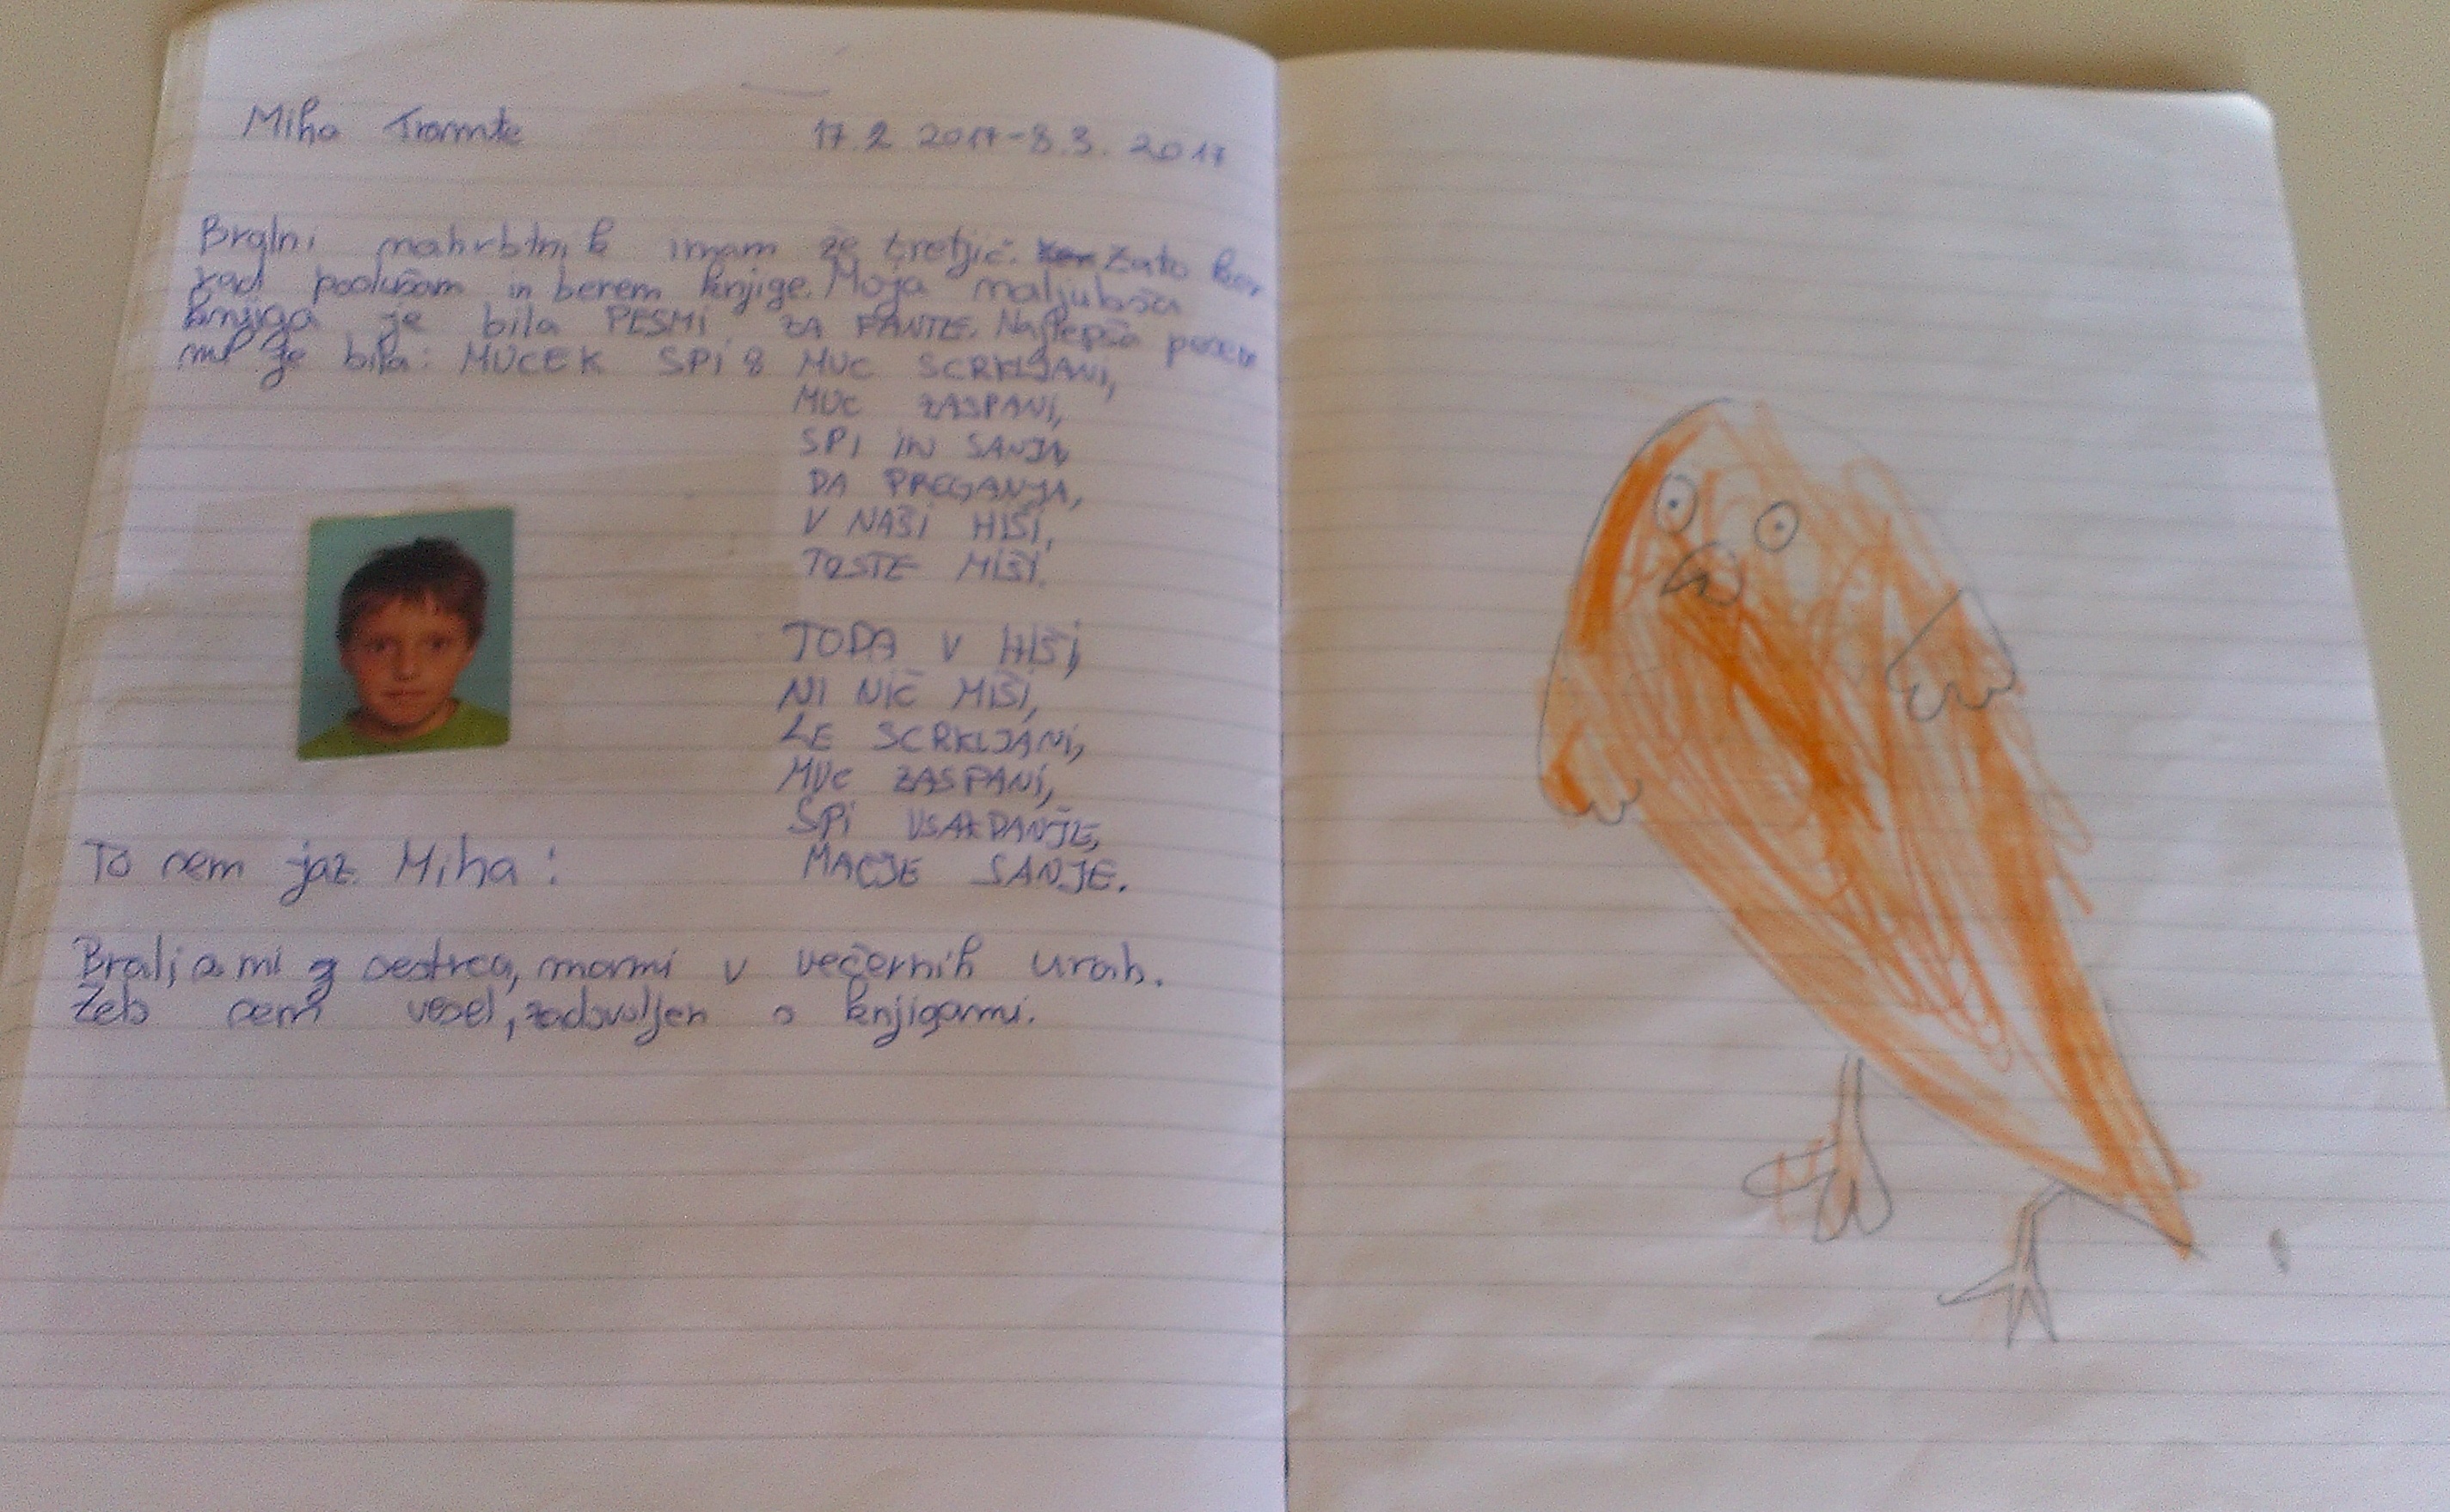 Miha Tramte 17.2 2017-8.3. 2017
Bralni nahrbtnik imam že tretjič. Zato ker
rad poslušam in berem knjige. Moja naljubša
knjiga je bila PESMI ZA FANTE. Najlepša pesem
mi je bila: MUCEK SPI 8 MUC SCRKLJANI,
MUC ZASPANI,
SPI IN SANJA
DA PREGANJA,
V NAŠI HIŠI,
TOSTE MIŠI.
TODA V HIŠI,
NI NIČ MIŠI,
LE SCRKLJANI,
MUC ZASPANI,
SPI VSAKDANJE,
MAČJE SANJE.
To sem jaz Miha:
Brali so mi z sestrca, mami v večernih urah.
Zelo sem vesel, zadovoljen s knjigami.